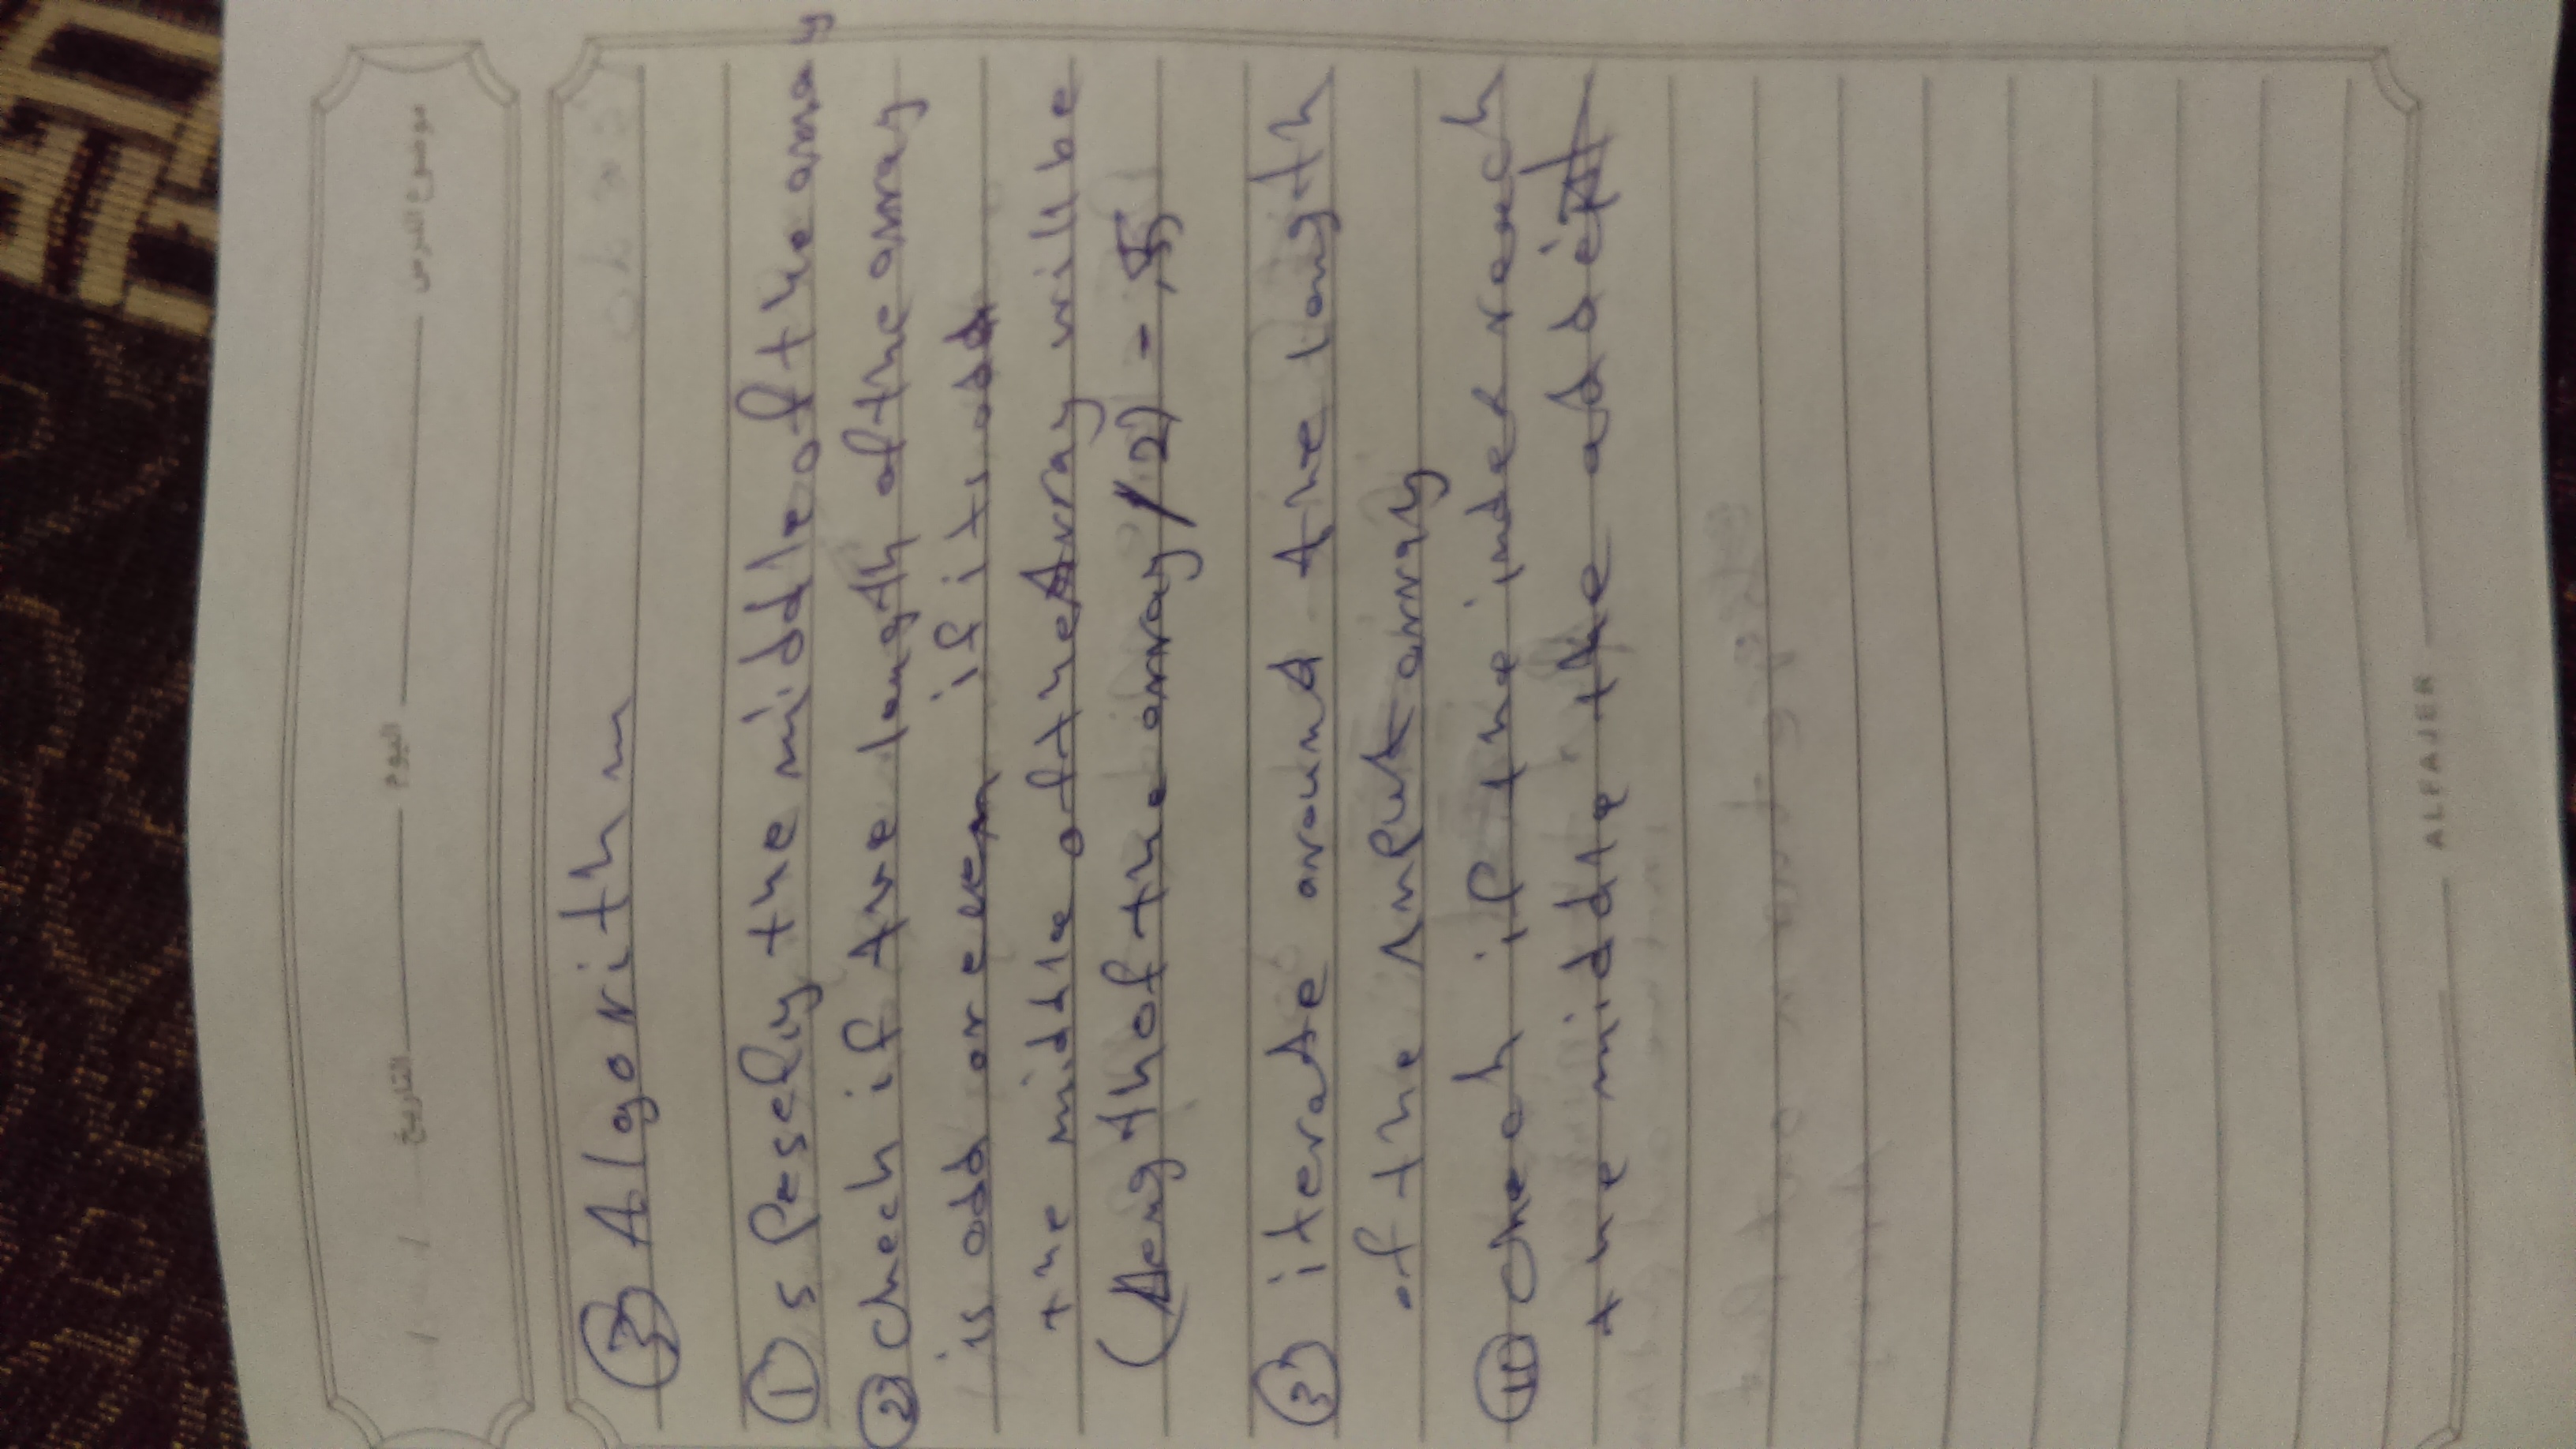 موضوع الدرس اليوم التاريخ / /
③ Algorithm
① s Pesefiy the middle of the array
② check if the length of the array
is odd or even if it odd
the middle of the Array will be
(length of the array / 2) - ,5
③ iterate around the length
of the input array
④ check if the index reach
the middle the add it
ALFAJER